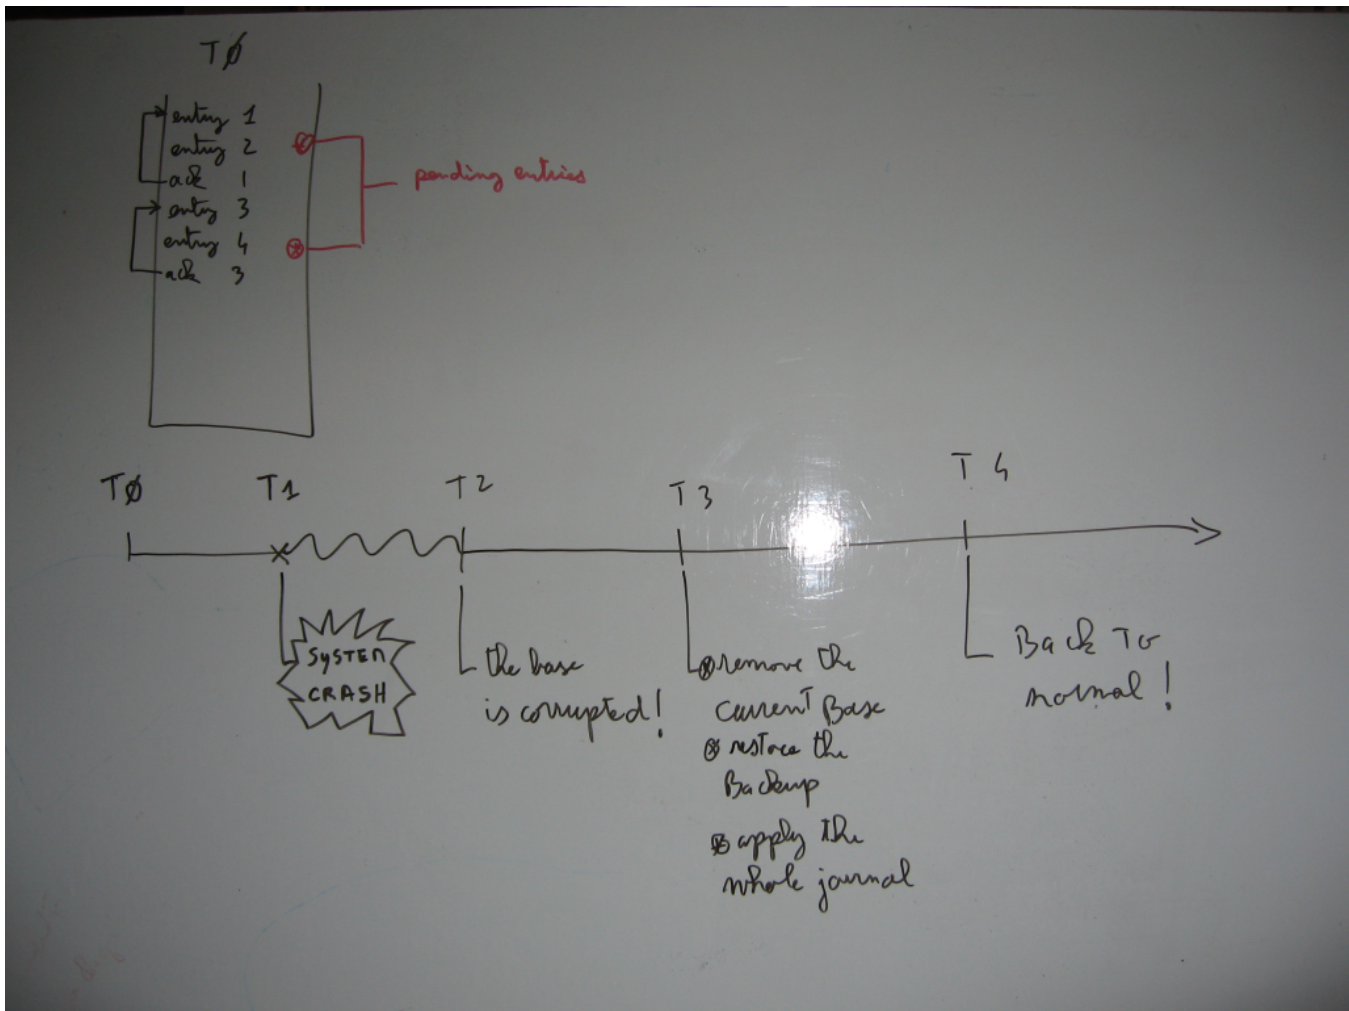 TØ
entry 1
entry 2
ack 1
entry 3
entry 4
ack 3
pending entries
TØ T1 T2 T3 T4
SYSTEM
CRASH
the base
is corrupted!
remove the
current Base
restore the
Backup
apply the
whole journal
Back To
normal!